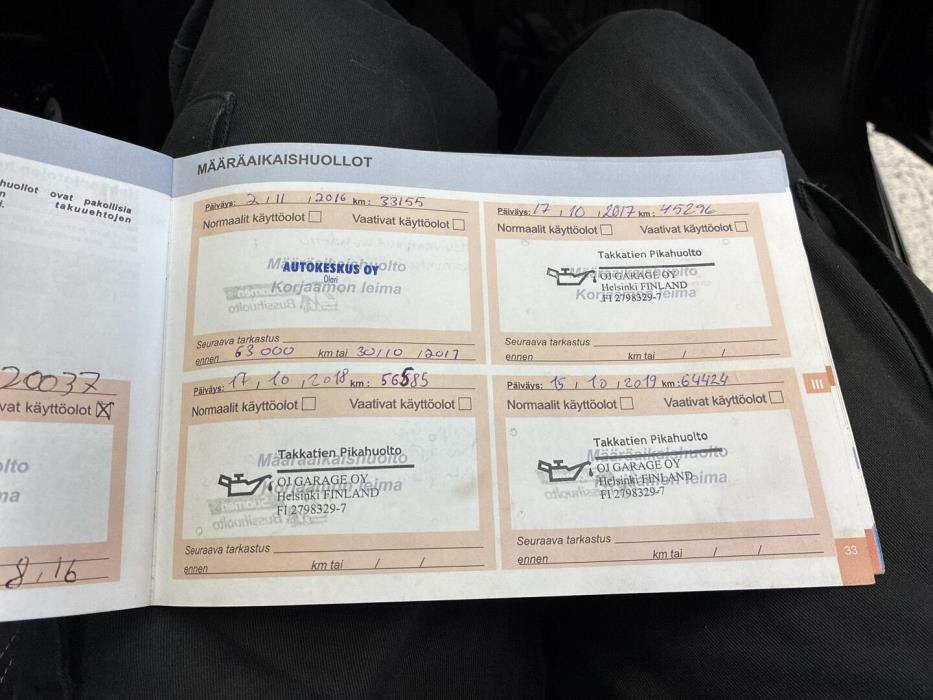 huollot ovat pakollisia
n takuuehtojen
20037
vat käyttöolot ☒
lto
ma
8,16
MÄÄRÄAIKAISHUOLLOT
Päiväys: 2 , 11 , 2016 km: 33155
Normaalit käyttöolot ☐ Vaativat käyttöolot ☐
Määräaikaishuolto
AUTOKESKUS OY
Olari
Korjaamon leima
Seuraava tarkastus
ennen 63 000 km tai 30/10 /2017
Päiväys: 17 , 10 , 2017 km: 45296
Normaalit käyttöolot ☐ Vaativat käyttöolot ☐
Takkatien Pikahuolto
Määräaikaishuolto
OJ GARAGE OY
Helsinki FINLAND
Korjaamon leima
FI 2798329-7
Seuraava tarkastus
ennen km tai / /
Päiväys: 17 , 10 , 2018 km: 56585
Normaalit käyttöolot ☐ Vaativat käyttöolot ☐
Takkatien Pikahuolto
Määräaikaishuolto
OJ GARAGE OY
Helsinki FINLAND
Korjaamon leima
FI 2798329-7
Seuraava tarkastus
ennen km tai / /
Päiväys: 15 , 10 , 2019 km: 64424
Normaalit käyttöolot ☐ Vaativat käyttöolot ☐
Takkatien Pikahuolto
Määräaikaishuolto
OJ GARAGE OY
Helsinki FINLAND
Korjaamon leima
FI 2798329-7
Seuraava tarkastus
ennen km tai / /
III
33